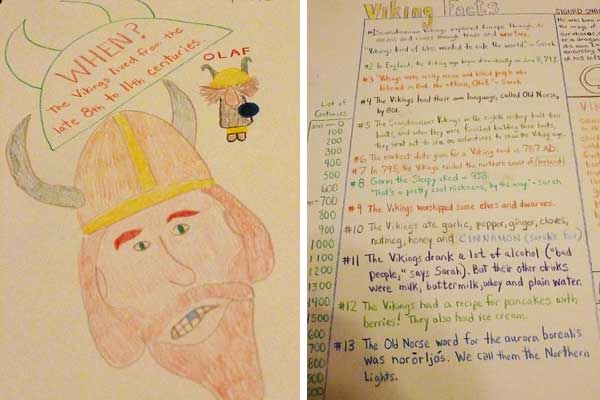 WHEN?
The Vikings lived from the
late 8th to 11th centuries.
OLAF
Viking Facts
#1 Scandinavian Vikings explored Europe through its
oceans and rivers through trade and warfare.
"Vikings kind of like wanted to rule the world." - Sarah
#2 In England, the Viking age began dramatically on June 8, 793.
#3 "Vikings were really mean and killed people who
believed in God. Not ok Vikings, Olaf." - Sarah
#4 The Vikings had their own language, called Old Norse,
by 801.
#5 The Scandinavian Vikings in the eighth century built their
boats, and when they were finished building their boats,
they went out to sea on adventures to
#6 The earliest date given for a Viking raid is 787 AD.
#7 In 795 the Vikings raided the northern coast of Ireland.
#8 Gorm the Sleepy died in 958.
"That's a pretty cool nickname, by the way." - Sarah
#9 The Vikings worshipped some elves and dwarves.
#10 The Vikings ate garlic, pepper, ginger, cloves,
nutmeg, honey and CINNAMON (Sarah's Fav)
#11 The Vikings drank a lot of alcohol ("bad
people," says Sarah). But their other drinks
were milk, buttermilk, whey and plain water.
#12 The Vikings had a recipe for pancakes with
berries! They also had ice cream.
#13 The Old Norse word for the aurora borealis
was norðrljós. We call them the Northern
Lights.
List of
Centuries
0
100
200
300
400
500
600
700
800
900
1000
1100
1200
1300
1400
1500
600
700
800
SIGURD SNA
He was born
the image of
or a dragon
its own
encircling
of his left
VIK